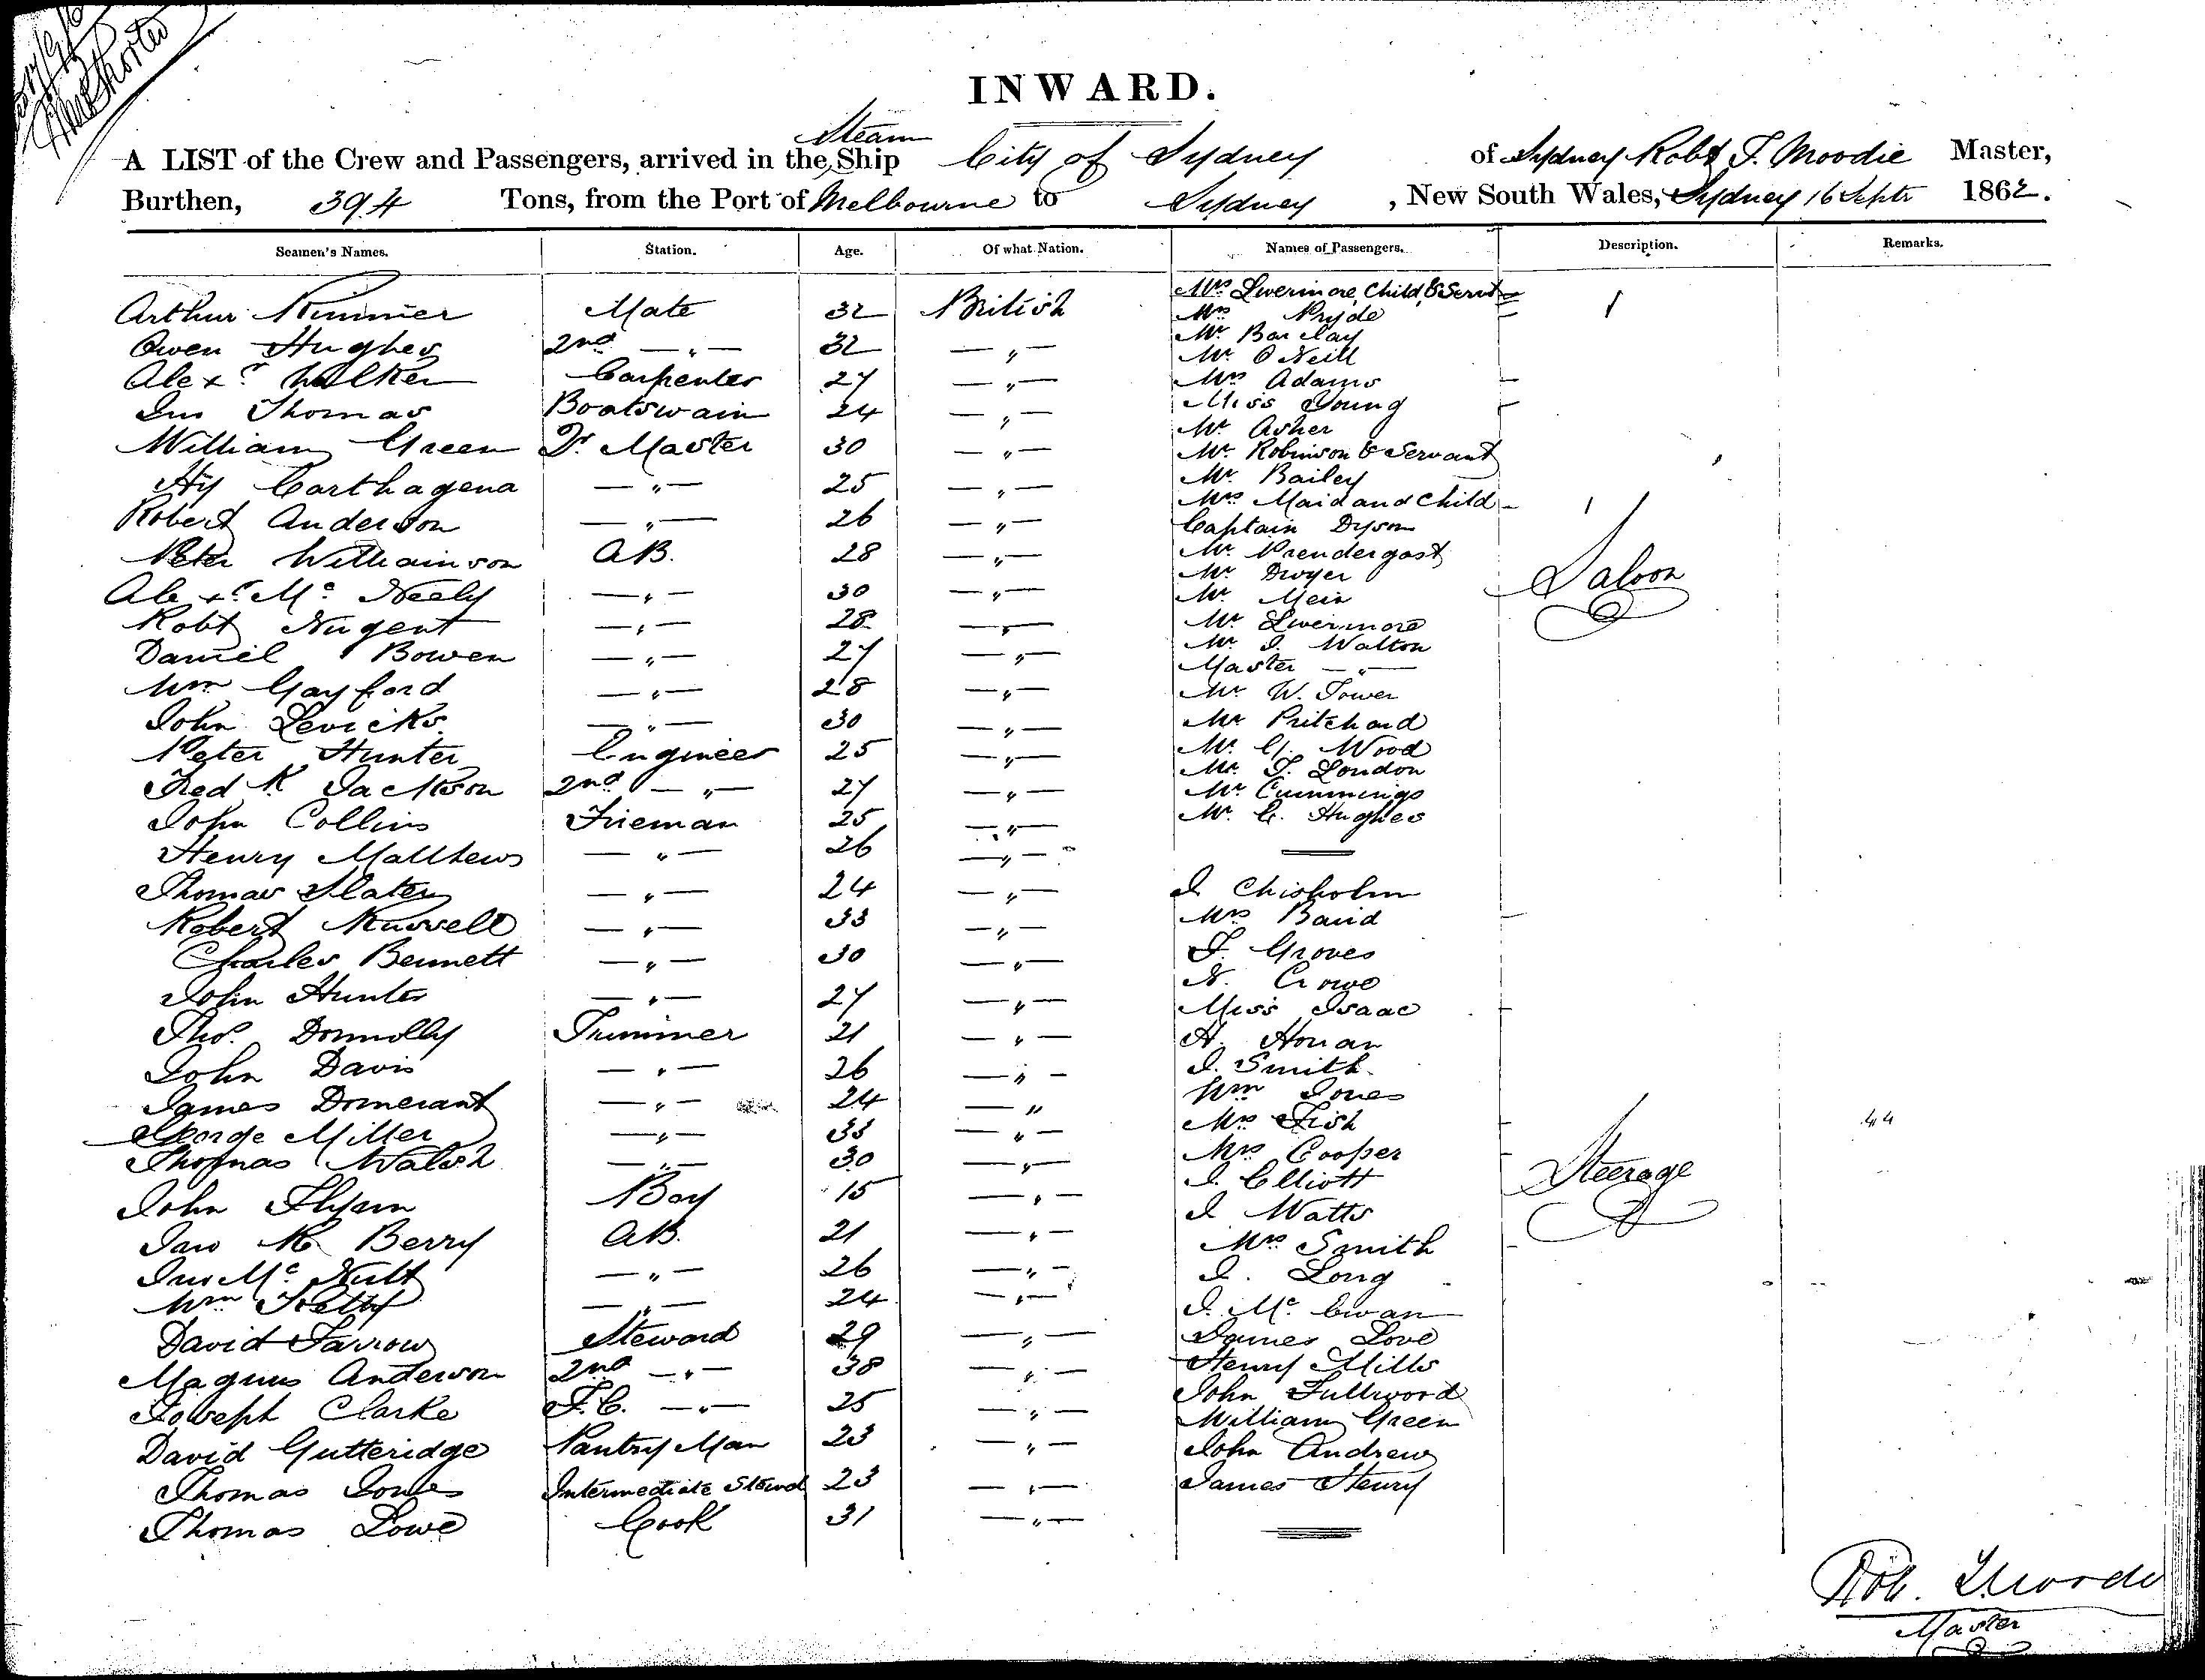 INWARD.
Steam
A LIST of the Crew and Passengers, arrived in the Ship City of Sydney of Sydney Robt T. Moodie Master,
Burthen, 394 Tons, from the Port of Melbourne to Sydney , New South Wales, Sydney 16 Septr 1862.
Seamen's Names. Station. Age. Of what Nation. Names of Passengers. Description. Remarks.
Arthur Rimmer Mate 32 British
Owen Hughes 2nd — " — 32 — " —
Alexr. Walker Carpenter 27 — " —
Jno Thomas Boatswain 24 — " —
William Green Qr. Master 30 — " —
Hy Carthagena — " — 25 — " —
Robert Anderson — " — 26 — " —
Peter Williamson AB. 28 — " —
Alexr. Mc Neely — " — 30 — " —
Robt Nugent — " — 28 — " —
Daniel Bowen — " — 27 — " —
Wm Gayford — " — 28 — " —
John Levicks — " — 30 — " —
Peter Hunter Engineer 25 — " —
Fredk Jackson 2nd — " — 27 — " —
John Collins Fireman 25 — " —
Henry Matthews — " — 26 — " —
Thomas Slater — " — 24 — " —
Robert Russell — " — 33 — " —
Charles Bennett — " — 30 — " —
John Hunter — " — 27 — " —
Thos. Donnolly Trimmer 21 — " —
John Davis — " — 26 — " —
James — " — 24 — " —
George Miller — " — 33 — " —
Thomas Walsh — " — 30 — " —
John Boy 15 — " —
Jas Berry AB. 21 — " —
Jno Mc Nult — " — 26 — " —
Wm — " — 24 — " —
David Farrow Steward 29 — " —
Magnus Anderson 2nd — " — 38 — " —
Joseph Clarke F.C. — " — 25 — " —
David Gutteridge Pantry Man 23 — " —
Thomas Jones Intermediate Steward 23 — " —
Thomas Lowe Cook 31 — " —
Mrs Livermore, Child, & Servt
Mrs Pryde
Mr Barclay
Mr O Neill
Mrs Adams
Miss Young
Mr Asher
Mr Robinson & Servant
Mr Bailey
Mrs Maid and Child
Captain Dyson
Mr Prendergast
Mr Dwyer
Mr Mein
Mr Livermore
Mr J. Walton
Master — " —
Mr W. Tower
Mr Pritchard
Mr G. Wood
Mr T. London
Mr Cummings
Mr C. Hughes
Saloon
J Chisholm
Mrs Baird
T. Groves
N. Crowe
Miss Isaac
H. Honan
J. Smith
Wm Jones
Mrs Fish
Mrs Cooper
J. Elliott
J Watts
Mrs Smith
J. Long
J. Mc Ewan
James Love
Henry Mills
John Fullwood
William Green
John Andrew
James Henry
Steerage
44
Master